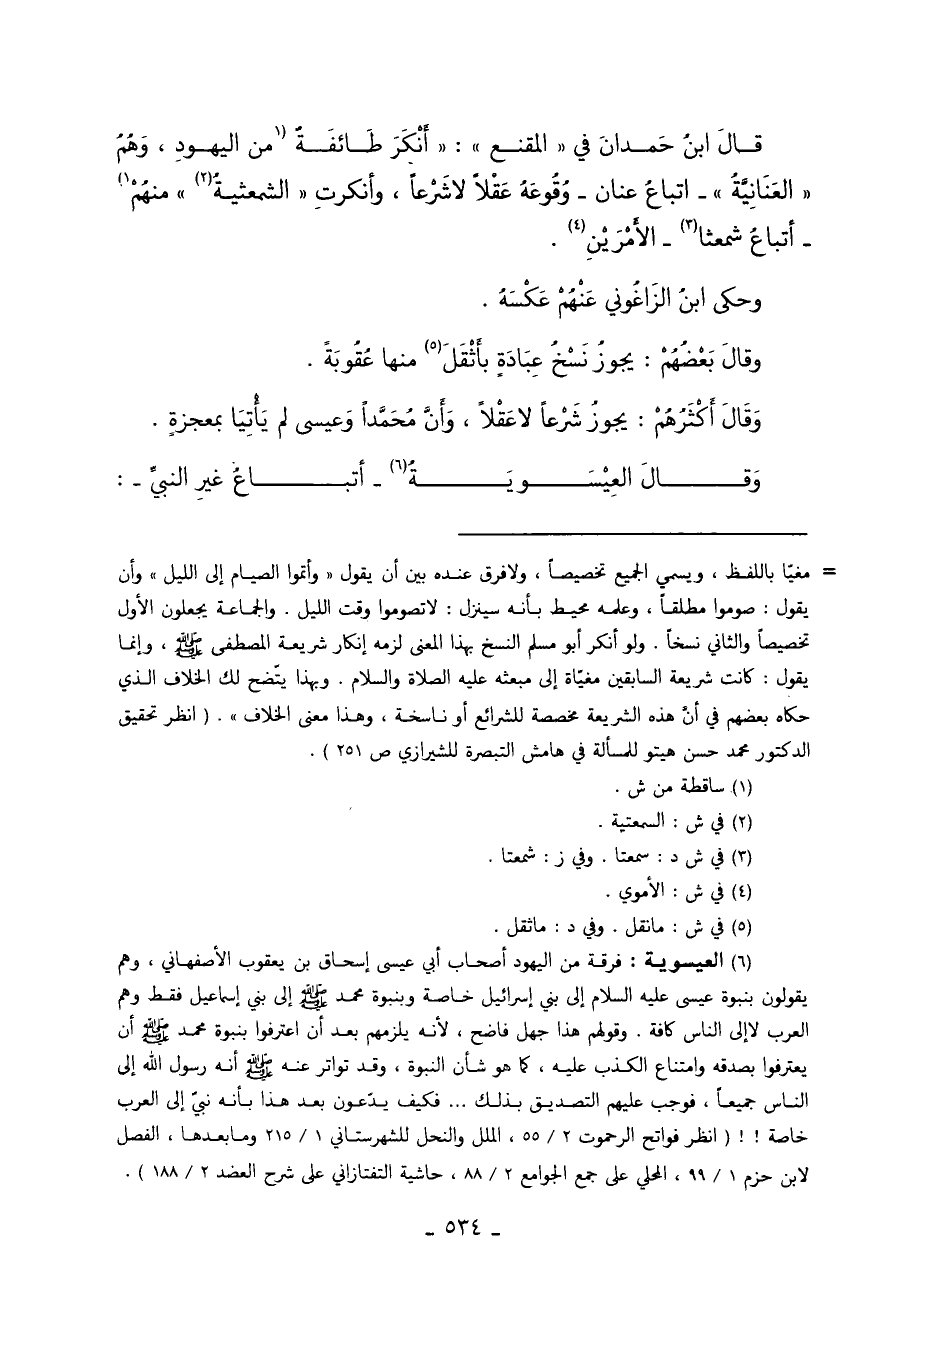 قـالَ ابنُ حَمـدانَ في « المقنـع » : « أَنْكَرَ طَـائفَـةٌ ⁽¹من اليهـودِ ، وَهُمُ
« العَنَانِيَّةُ » ـ اتباعُ عنان ـ وُقُوعَهُ عَقْلاً لاشَرْعاً ، وأنكرتِ « الشمعثيـةُ⁽٢⁾ » منهُمْ¹⁾
ـ أتباعُ شمعثا⁽٣⁾ ـ الأَمْرَيْنِ⁽٤⁾ .
وحكى ابنُ الزَاغُوني عَنْهُمْ عَكْسَهُ .
وقالَ بَعْضُهُمْ : يجوزُ نَسْخُ عِبَادَةٍ بأَثْقَلَ⁽٥⁾ منها عُقُوبَةً .
وَقَالَ أَكْثَرُهُمْ : يجوزُ شَرْعاً لاعَقْلاً ، وَأَنَّ مُحَمَّداً وَعيسى لم يَأْتِيَا بمعجزةٍ .
وَقـــالَ العِيْسَـــويَـــةُ⁽٦⁾ ـ أتبـــاعُ غيرِ النبيِّ ـ :
= مغيّا باللفـظ ، ويسمي الجميع تخصيصـاً ، ولافرق عنـده بين أن يقول « وأتموا الصيـام إلى الليل » وأن
يقول : صوموا مطلقـاً ، وعلمـه محيـط بـأنـه سينزل : لاتصوموا وقت الليل . والجمـاعـة يجعلون الأول
تخصيصاً والثاني نسخاً . ولو أنكر أبو مسلم النسخ بهذا المعنى لزمه إنكار شريعـة المصطفى ﷺ ، وإنمـا
يقول : كانت شريعة السابقين مغيّاة إلى مبعثه عليه الصلاة والسلام . وبهذا يتّضح لك الخلاف الـذي
حكاه بعضهم في أنّ هذه الشريعة مخصصة للشرائع أو نـاسخـة ، وهـذا معنى الخلاف » . ( انظر تحقيق
الدكتور محمد حسن هيتو للمسألة في هامش التبصرة للشيرازي ص ٢٥١ ) .
(١) ساقطة من ش .
(٢) في ش : السمعتية .
(٣) في ش د : سمعتا . وفي ز : شمعتا .
(٤) في ش : الأموي .
(٥) في ش : مانقل . وفي د : ماثقل .
(٦) العيسويـة : فرقـة من اليهود أصحـاب أبي عيسى إسحـاق بن يعقوب الأصفهـاني ، وهم
يقولون بنبوة عيسى عليه السلام إلى بني إسرائيل خـاصـة وبنبوة محمـد ﷺ إلى بني إسماعيل فقـط وهم
العرب لاإلى الناس كافة . وقولهم هذا جهل فاضح ، لأنـه يلزمهم بعـد أن اعترفوا بنبوة محمـد ﷺ أن
يعترفوا بصدقه وامتناع الكـذب عليـه ، كما هو شـأن النبوة ، وقـد تواتر عنـه ﷺ أنـه رسول الله إلى
النـاس جميعـاً ، فوجب عليهم التصديـق بـذلـك ... فكيف يـدّعون بعد هـذا بـأنـه نبيّ إلى العرب
خاصة ! ! ( انظر فواتح الرحموت ٢ / ٥٥ ، الملل والنحل للشهرستـاني ١ / ٢١٥ ومـابعـدهـا ، الفصل
لابن حزم ١ / ٩٩ ، المحلي على جمع الجوامع ٢ / ٨٨ ، حاشية التفتازاني على شرح العضد ٢ / ١٨٨ ) .
ـ ٥٣٤ ـ